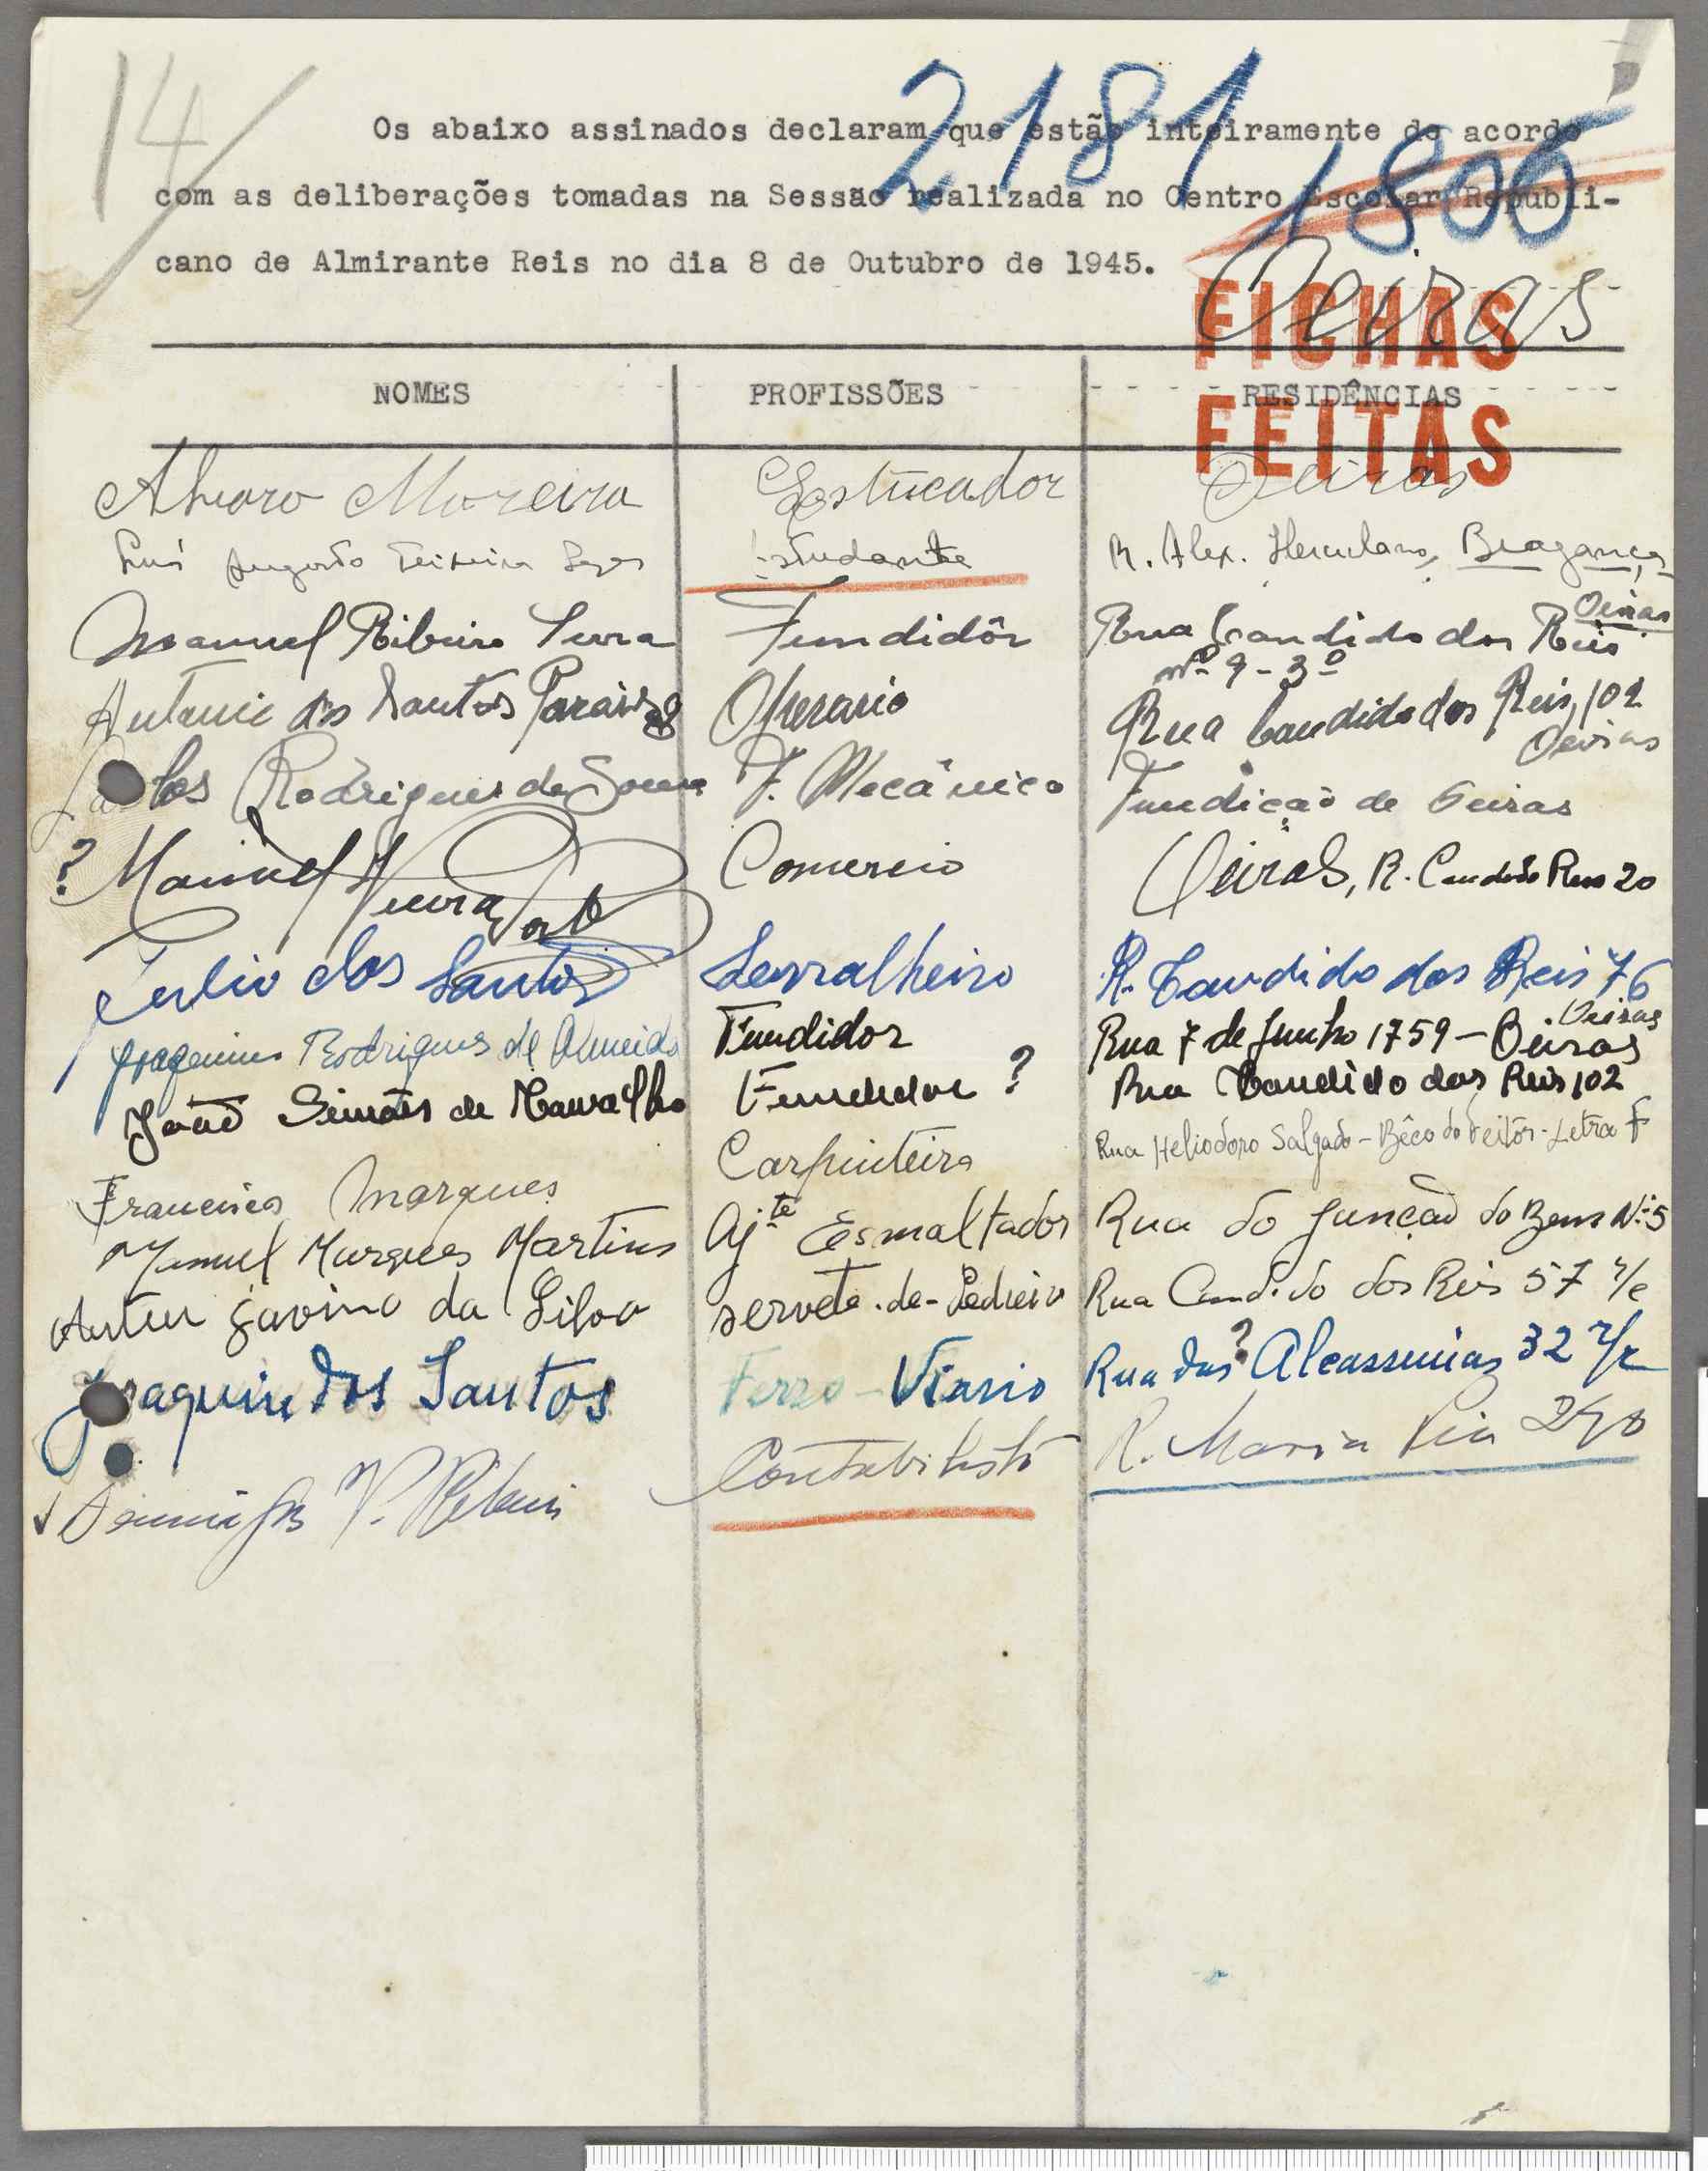 14
2181
1806
Os abaixo assinados declaram que estão inteiramente de acordo
com as deliberações tomadas na Sessão realizada no Centro Escolar Republi-
cano de Almirante Reis no dia 8 de Outubro de 1945.
Oeiras
FICHAS
FEITAS
NOMES PROFISSÕES RESIDÊNCIAS
Alvaro Moreira Estucador Oeiras
Luís Augusto Teixeira estudante R. Alex. Herculano, Bragança
Manuel Ribeiro Serra Fundidôr Rua Candido dos Reis Oeiras
nº 9 - 3º
Antonio dos Santos Paraiso Operario Rua Candido dos Reis, 102
Oeiras
Carlos Rodrigues de Sousa F. Mecânico Fundição de Oeiras
? Manuel Vieira Comercio Oeiras, R. Candido Reis 20
Julio dos Santos Serralheiro R. Candido dos Reis 76
Oeiras
Joaquim Rodrigues de Almeida Fundidor Rua 7 de Junho 1759 - Oeiras
João Simões de Carvalho Fundidor ? Rua Candido dos Reis 102
Francisco Marques Carpinteiro Rua Heliodoro Salgado - Bêco do Feitôr - Letra F
Manuel Marques Martins Ajte Esmaltador Rua do Junção do Bem Nº 5
Artur Gavino da Silva servete-de-Pedreiro Rua Candido dos Reis 57 r/c
Joaquim dos Santos Ferro-Viario Rua das ? Alcassimas 32 r/c
Domingos V. Ribeiro Contabilista R. Maria Pia